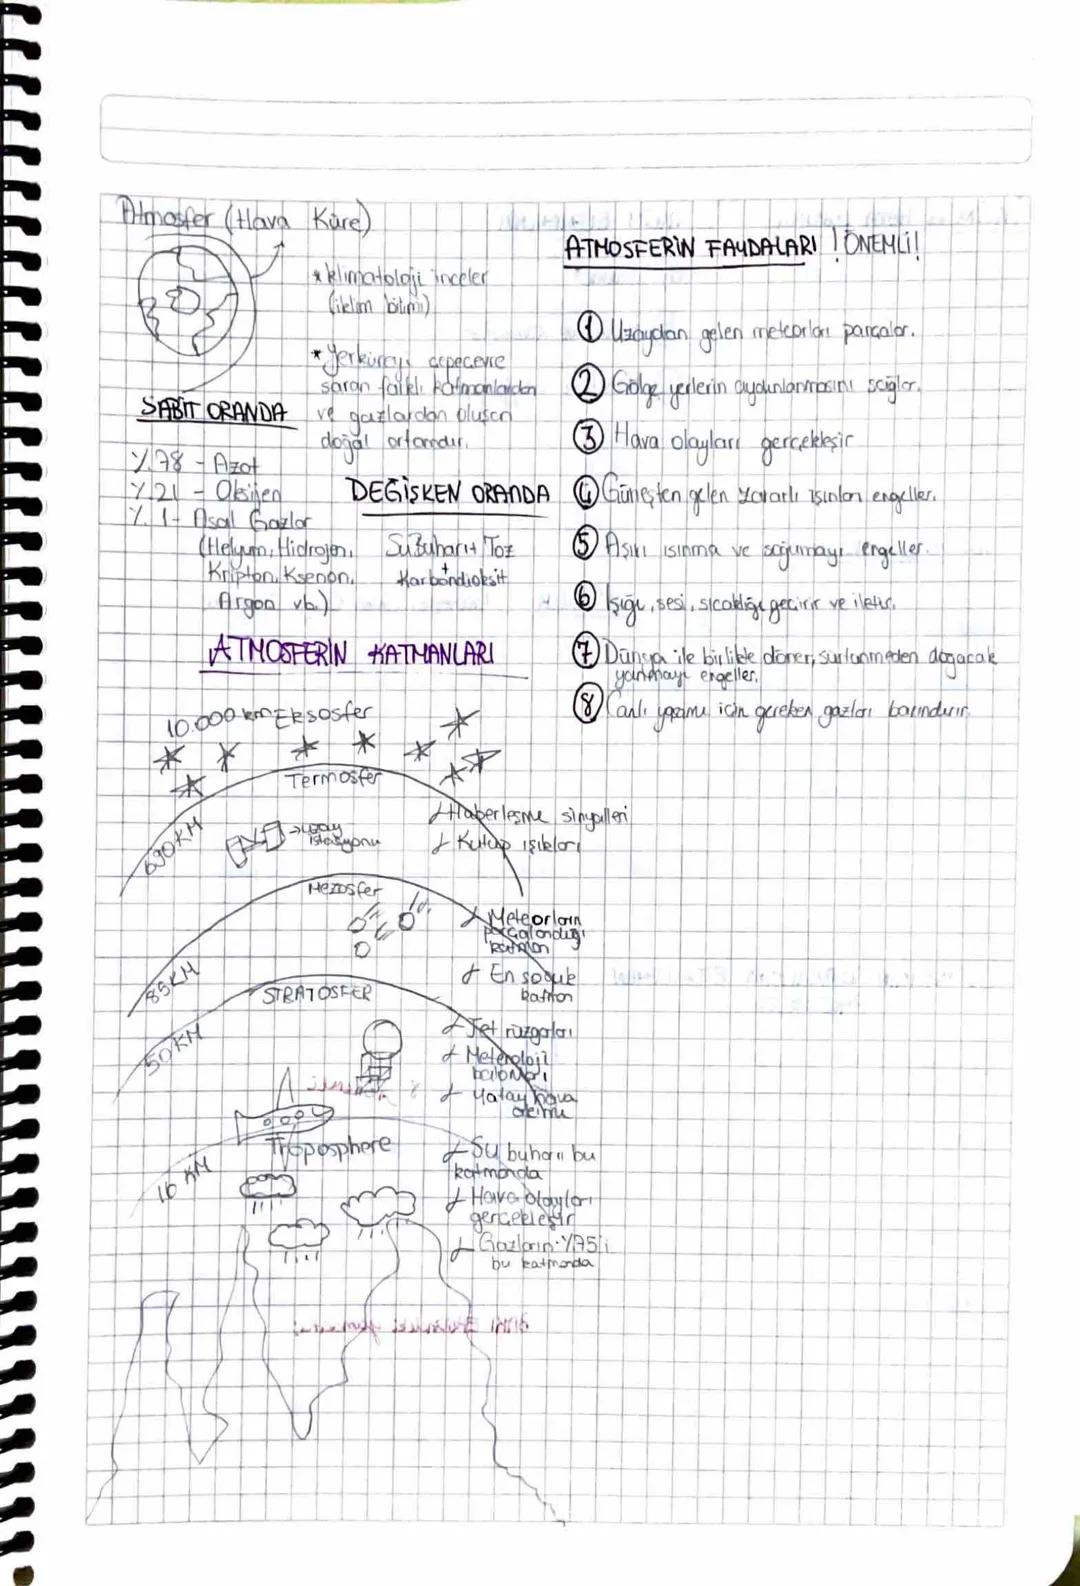 Atmosfer (Hava Küre)
* klimatoloji inceler
(iklim bilimi)
* Yerküreyi çepeçevre
saran farklı katmanlardan
ve gazlardan oluşan
doğal ortamdır.
SABİT ORANDA
%78 - Azot
%21 - Oksijen
%1 - Asal Gazlar
(Helyum, Hidrojen,
Kripton, Ksenon,
Argon vb.)
DEĞİŞKEN ORANDA
Su Buharı + Toz
+
Karbondioksit
ATMOSFERİN FAYDALARI ! ÖNEMLİ!
1 Uzaydan gelen meteorları parçalar.
2 Gölge yerlerin aydınlanmasını sağlar.
3 Hava olayları gerçekleşir
4 Güneşten gelen zararlı ışınları engeller.
5 Aşırı ısınma ve soğumayı engeller.
6 Işığı, sesi, sıcaklığı geçirir ve iletir.
7 Dünya ile birlikte döner, sürtünmeden doğacak
yanmayı engeller.
8 Canlı yaşamı için gereken gazları barındırır.
ATMOSFERİN KATMANLARI
10.000 km Eksosfer
Termosfer
690 KM
→ uzay
istasyonu
Haberleşme sinyalleri
Kutup ışıkları
Mezosfer
85 KM
Meteorların
parçalandığı
katman
En soğuk
katman
STRATOSFER
50 KM
Jet rüzgarları
Meteroloji
balonları
Yatay hava
akımı
Troposphere
16 KM
Su buharı bu
katmanda
Hava olayları
gerçekleşir
Gazların %75'i
bu katmanda